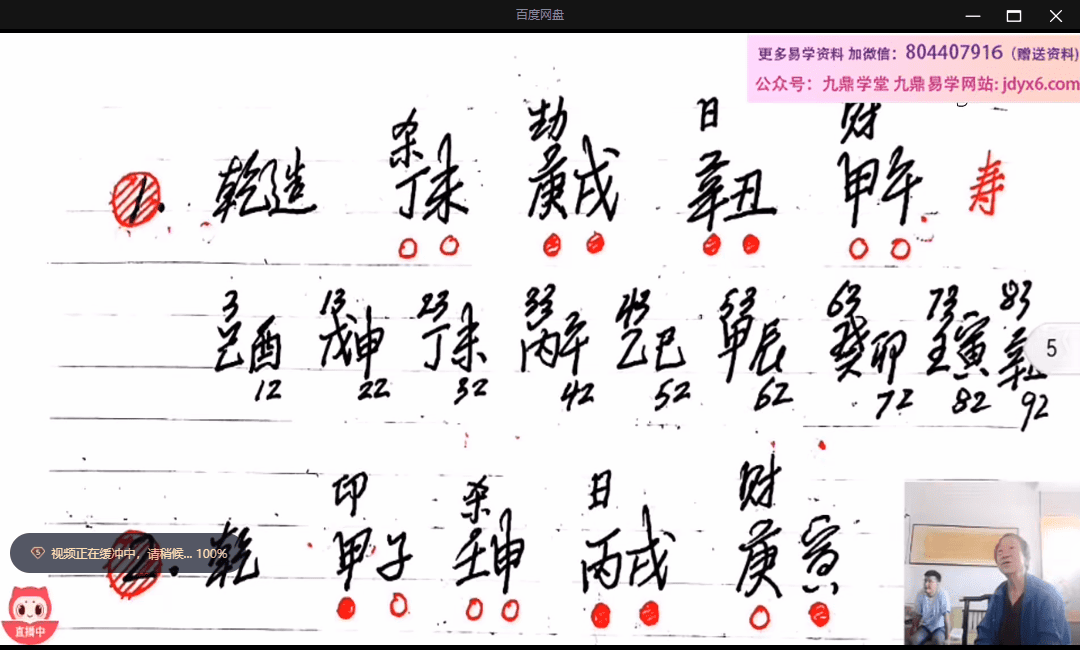 百度网盘
更多易学资料 加微信：804407916（赠送资料）
公众号：九鼎学堂 九鼎易学网站: jdyx6.com
杀 劫 日 财
1. 乾造 丁未 庚戌 辛丑 甲午 寿
3 13 23 33 43 53 63 73 83
己酉 戊申 丁未 丙午 乙巳 甲辰 癸卯 壬寅 辛
5
12 22 32 42 52 62 72 82 92
印 杀 日 财
2. 乾 甲子 壬申 丙戌 庚寅
视频正在缓冲中，请稍候... 100%
直播中